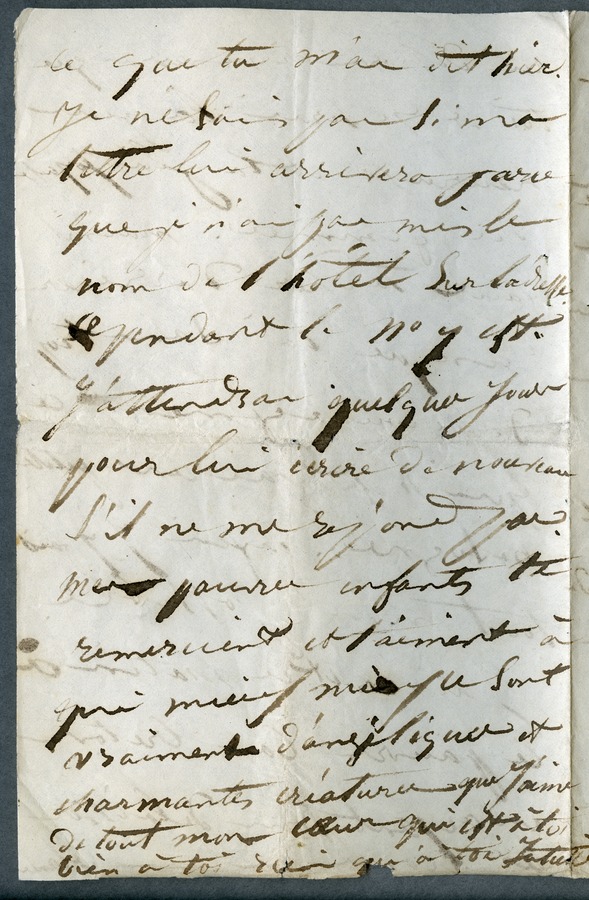 ce que tu m'as dit hier.
Je ne sais pas si ma
lettre lui arrivera parce
que je n'ai pas mis le
nom de l'hôtel sur l'adresse
cependant le no y est.
J'attendrai quelques jours
pour lui écrire de nouveau
s'il ne me répond pas.
Mes pauvres enfants te
remercient et t'aiment à
qui mieux mieux ce sont
vraiment d'angéliques et
charmantes créatures que j'aime
de tout mon cœur qui est à toi
bien à toi rien qu'à toi Juliette